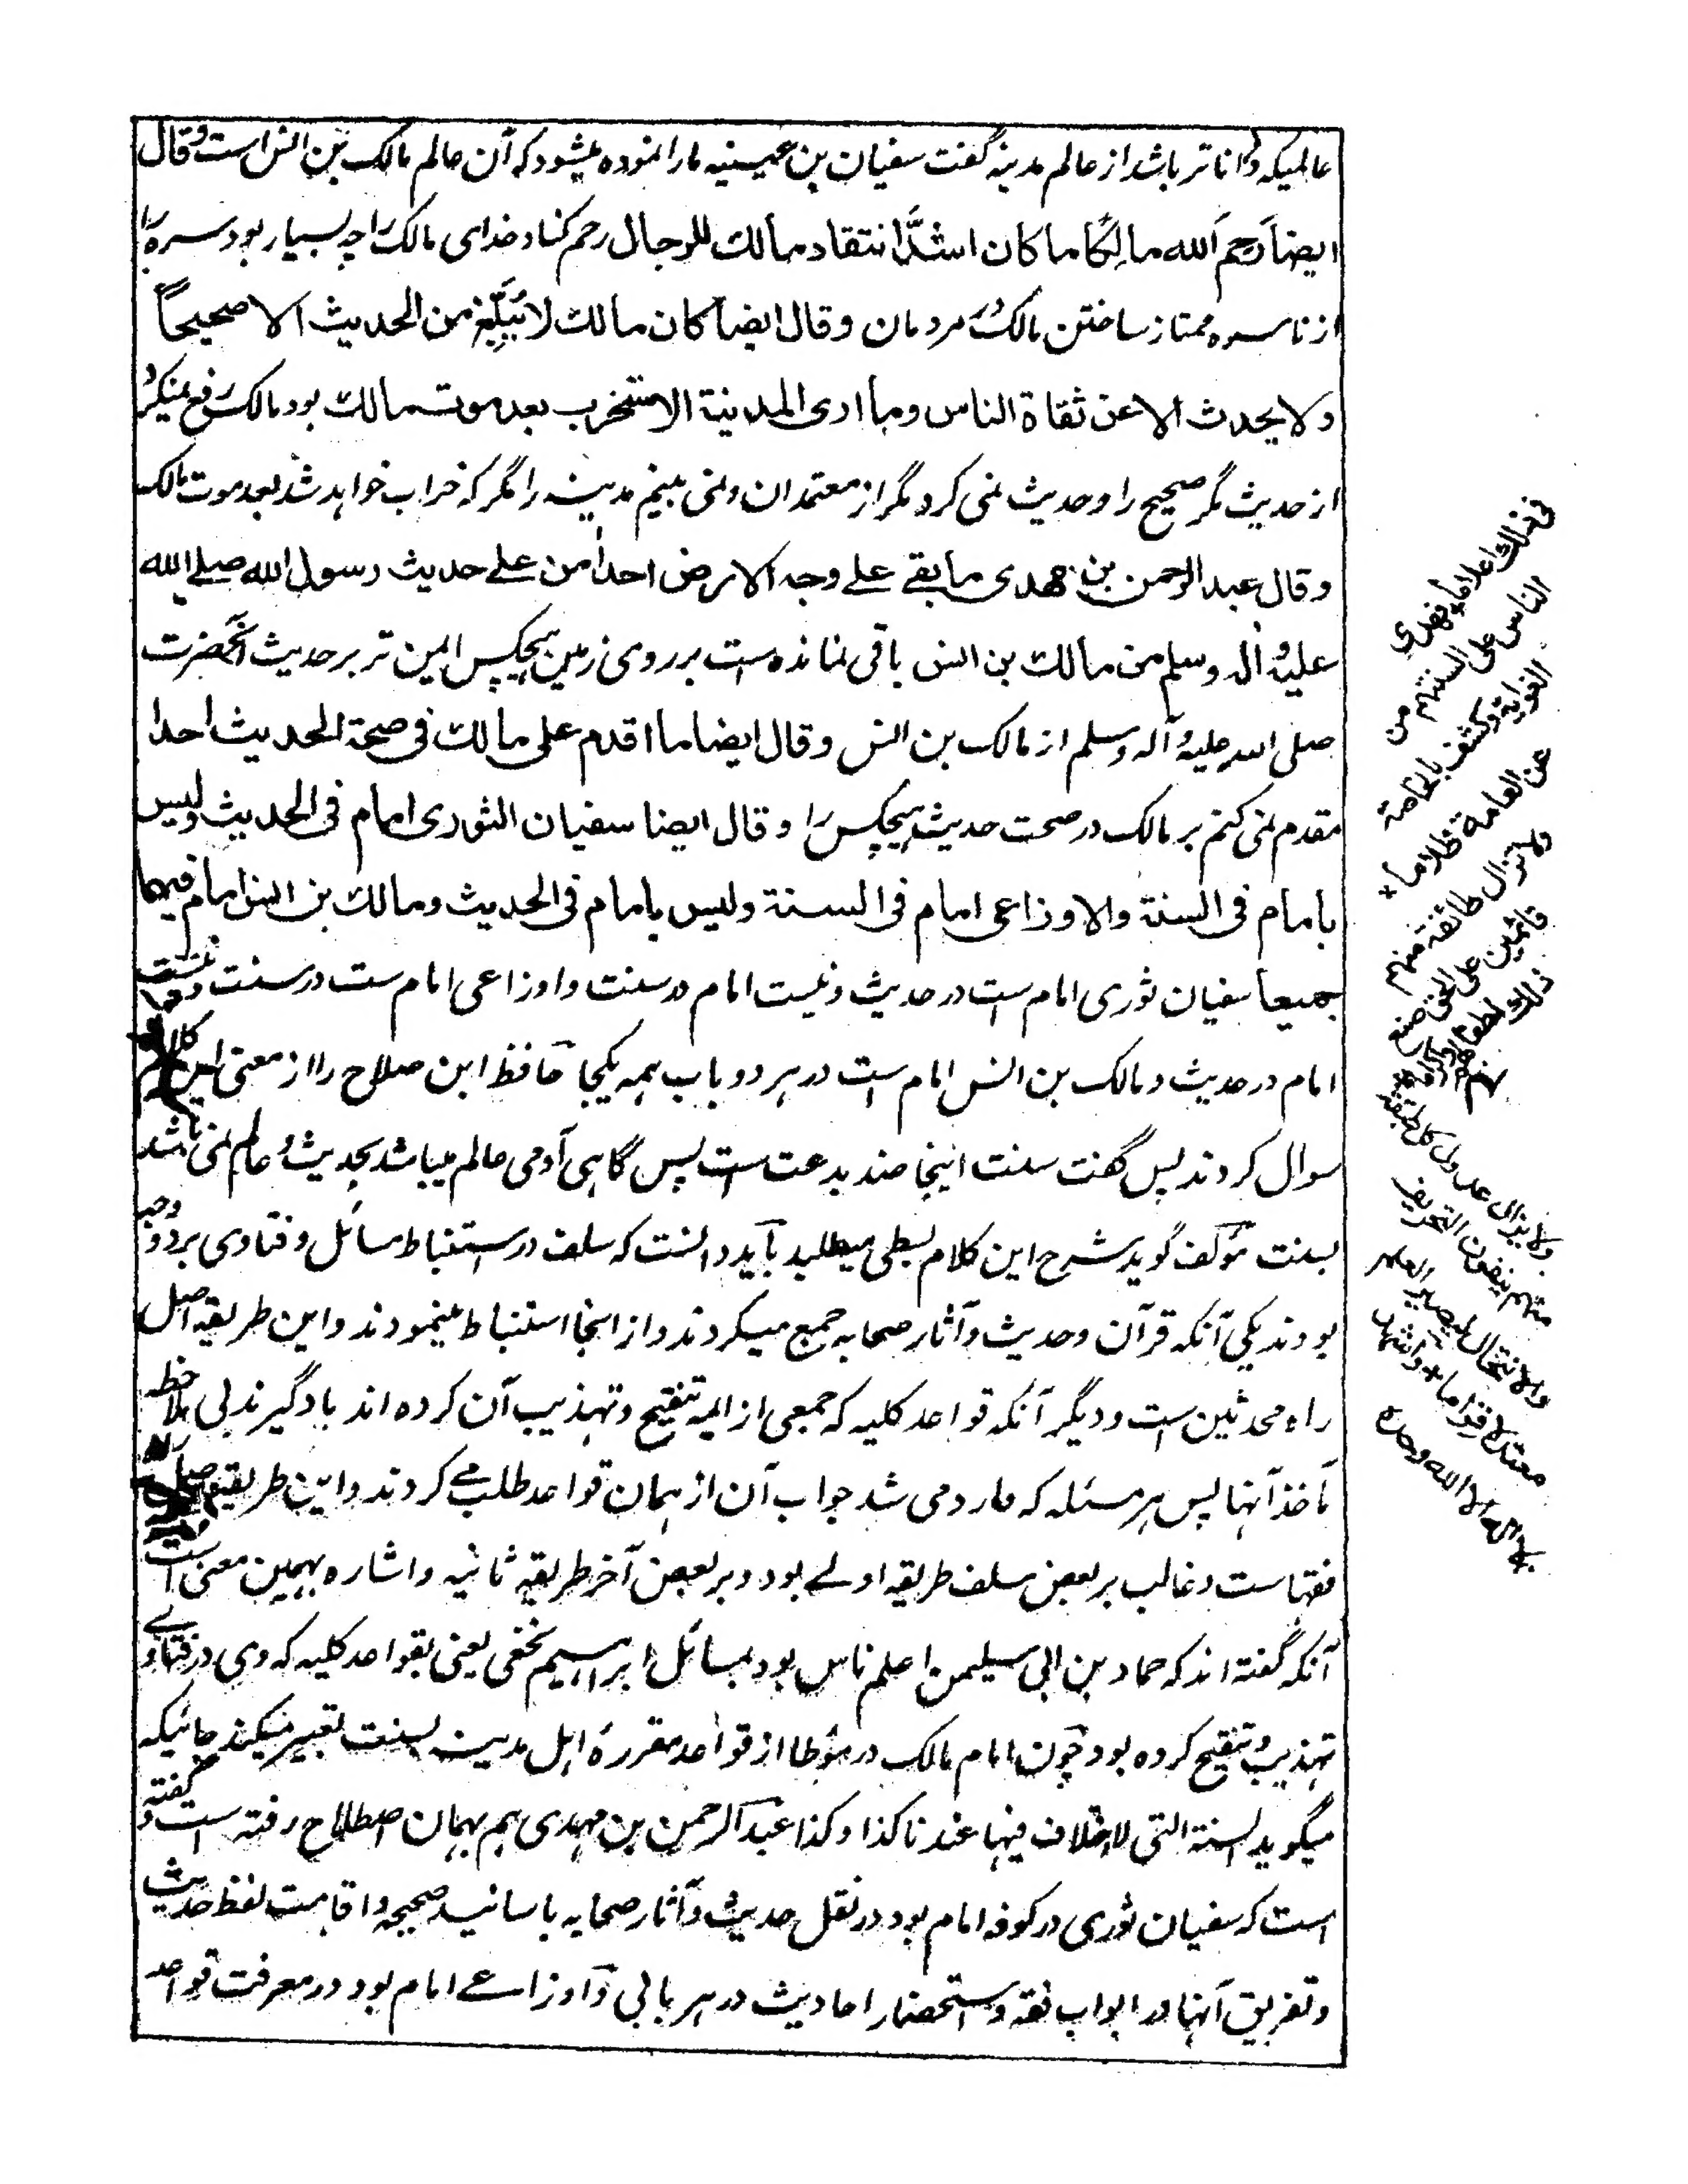 عالمیکه دانا تر باشد از عالم مدینه گفت سفیان بن عیینه ما را نموده میشود که آن عالم مالک بن انس است وقال
ایضا رَحِمَ الله مالِکًا ما کان اشدَّ انتقاد مالک للرجال رحم کناد خدای مالک را چه بسیار بود سره را
از ناسره ممتاز ساختن مالک مردمان وقال ایضا کان مالک لا یُبَلِّغ من الحدیث الا صحیحاً
ولا یحدث الا عن ثقاة الناس وما اری المدینة الا ستخرب بعد موت مالک بود مالک رفع نمیکرد
از حدیث مگر صحیح را و حدیث نمی کرد مگر از معتمدان و نمی بینم مدینه را مگر که خراب خواهد شد بعد موت مالک
وقال عبد الرحمن بن مهدی ما بقے علے وجه الارض احدا من علے حدیث رسول الله صلے الله
علیه وآله وسلم من مالک بن انس باقی نمانده ست بر روی زمین هیچکس امین تر بر حدیث آنحضرت
صلی الله علیه وآله وسلم از مالک بن انس وقال ایضا ما اقدم علی مالک فی صحة الحدیث احدا
مقدم نمی کنم بر مالک در صحت حدیث هیچکس را وقال ایضا سفیان الثوری امام فی الحدیث ولیس
بامام فی السنة والاوزاعی امام فی السنة ولیس بامام فی الحدیث ومالک بن انس امام فیهما
جمیعا سفیان ثوری امام ست در حدیث و نیست امام در سنت و اوزاعی امام ست در سنت و نیست
امام در حدیث و مالک بن انس امام ست در هر دو باب همه یکجا حافظ ابن صلاح را از معنی این کلام
سوال کردند پس گفت سنت اینجا ضد بدعت ست پس گاهی آدمی عالم میباشد بحدیث و عالم نمی باشد
بسنت مؤلف گوید شرح این کلام بسطی میطلبد باید دانست که سلف در استنباط مسائل و فتاوی بر دو وجه
بودند یکی آنکه قرآن و حدیث و آثار صحابه جمع میکردند و از انجا استنباط مینمودند و این طریقه اصل
راه محدثین ست و دیگر آنکه قواعد کلیه که جمعی از ایمه تنقیح و تهذیب آن کرده اند یاد گیرند بی ملاحظه
مآخذ آنها پس هر مسئله که وارد می شد جواب آن از همان قواعد طلب مے کردند و این طریقه اصل راه
فقها ست و غالب بر بعض سلف طریقه اولے بود و بر بعض آخر طریقه ثانیه و اشاره بهمین معنی است
آنکه گفته اند که حماد بن ابی سلیمن اعلم ناس بود بمسائل ابراهیم نخعی یعنی بقواعد کلیه که وی در فتاوے
تهذیب و تنقیح کرده بود چون امام مالک در مؤطا از قواعد مقررهٔ اهل مدینه بسنت تعبیر میکند جائیکه
میگوید السنة التی لا اختلاف فیها عندنا کذا و کذا عبد الرحمن بن مهدی هم بهمان اصطلاح رفته ست و گفته
است که سفیان ثوری در کوفه امام بود در نقل حدیث و آثار صحابه با سانید صحیحه و اقامت لفظ حدیث
و تفریق آنها در ابواب فقه و استحضار احادیث در هر بابی و اوزاعے امام بود در معرفت قواعد
فی ذلك اعلاما فهدی
الناس علی السنتهم من
الغوایة وکشف بالخاصة
عن العامة ظلاما
ولا تزال طائفة منهم
قائمین علی الحق صنع
ذلك لطفا
ولا یزال عدول کل طبقة
منهم ینفون التحریف
والانتحال لیصیر العلم
معتدلا قواما واشهد ان
لا اله الا الله وحده